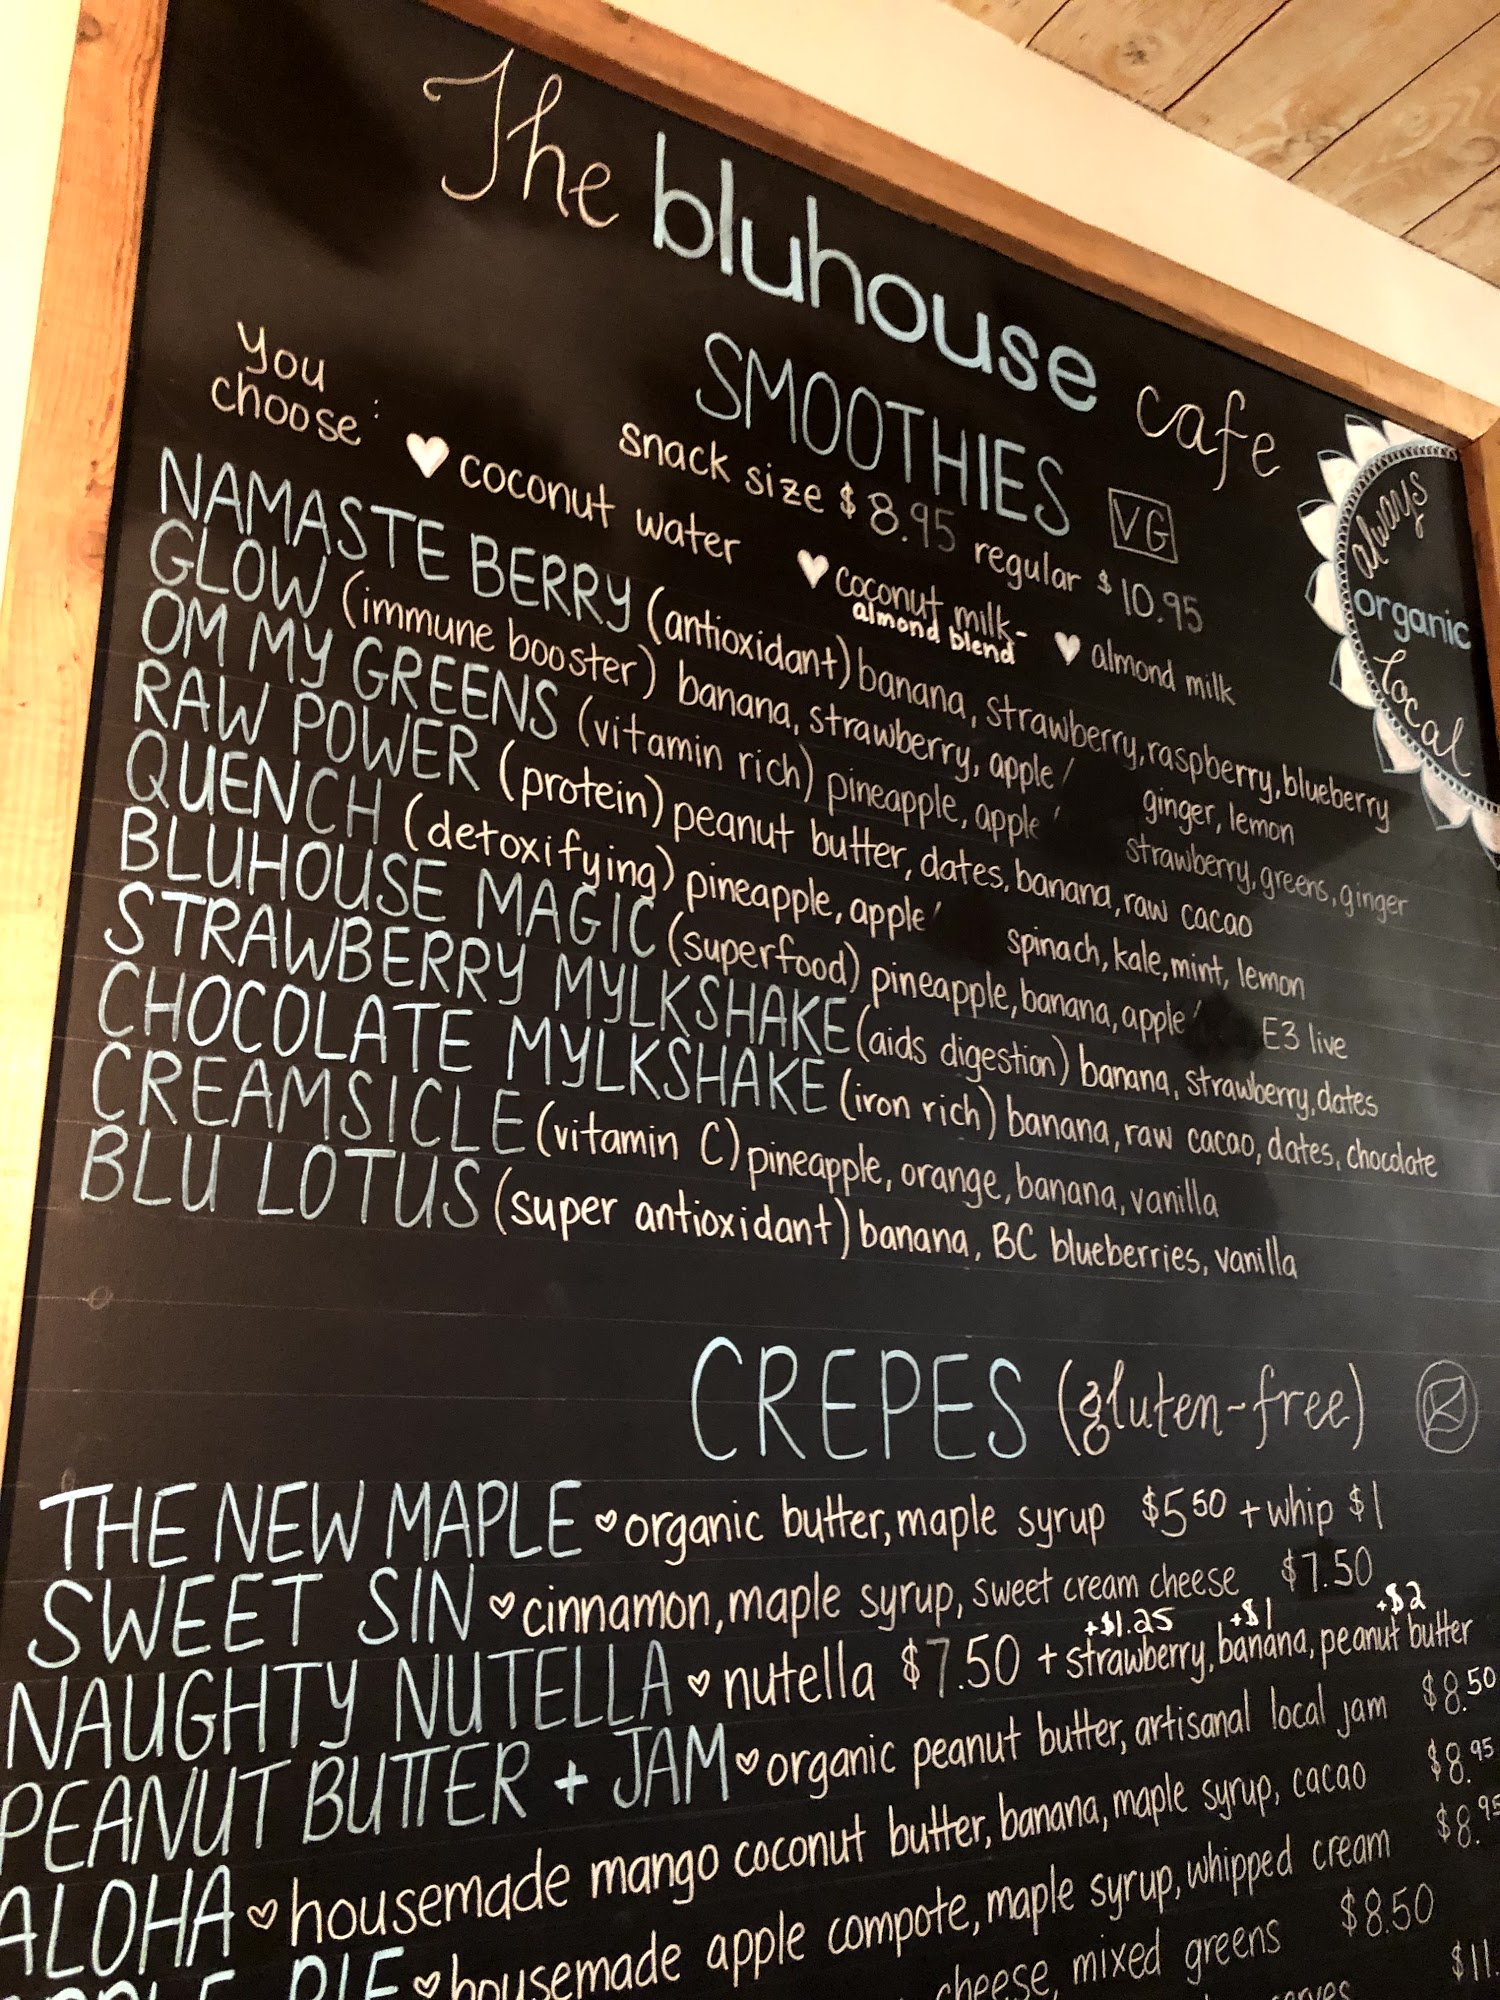 The bluhouse cafe
SMOOTHIES VG
snack size $8.95 regular $10.95
you choose: ♥ coconut water ♥ coconut milk-almond blend ♥ almond milk
always
organic
local
NAMASTE BERRY (antioxidant) banana, strawberry, raspberry, blueberry
GLOW (immune booster) banana, strawberry, apple/ ginger, lemon
OM MY GREENS (vitamin rich) pineapple, apple/ strawberry, greens, ginger
RAW POWER (protein) peanut butter, dates, banana, raw cacao
QUENCH (detoxifying) pineapple, apple/ spinach, kale, mint, lemon
BLUHOUSE MAGIC (superfood) pineapple, banana, apple/ E3 live
STRAWBERRY MYLKSHAKE (aids digestion) banana, strawberry, dates
CHOCOLATE MYLKSHAKE (iron rich) banana, raw cacao, dates, chocolate
CREAMSICLE (vitamin C) pineapple, orange, banana, vanilla
BLU LOTUS (super antioxidant) banana, BC blueberries, vanilla
CREPES (gluten-free)
THE NEW MAPLE ♡ organic butter, maple syrup $5.50 + whip $1
SWEET SIN ♡ cinnamon, maple syrup, sweet cream cheese $7.50
+$1.25 +$1 +$2
NAUGHTY NUTELLA ♡ nutella $7.50 + strawberry, banana, peanut butter
PEANUT BUTTER + JAM ♡ organic peanut butter, artisanal local jam $8.50
ALOHA ♡ housemade mango coconut butter, banana, maple syrup, cacao $8.95
PIE ♡ housemade apple compote, maple syrup, whipped cream $8.95
cheese, mixed greens $8.50
$11.